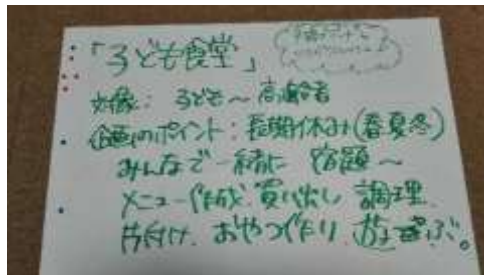 「子ども食堂」
対象：子ども～高齢者
企画のポイント：長期休み(春夏冬)
みんなで一緒に 宿題～
メニュー作成、買い出し 調理、
片付け、おやつ作り 遊ぶ。